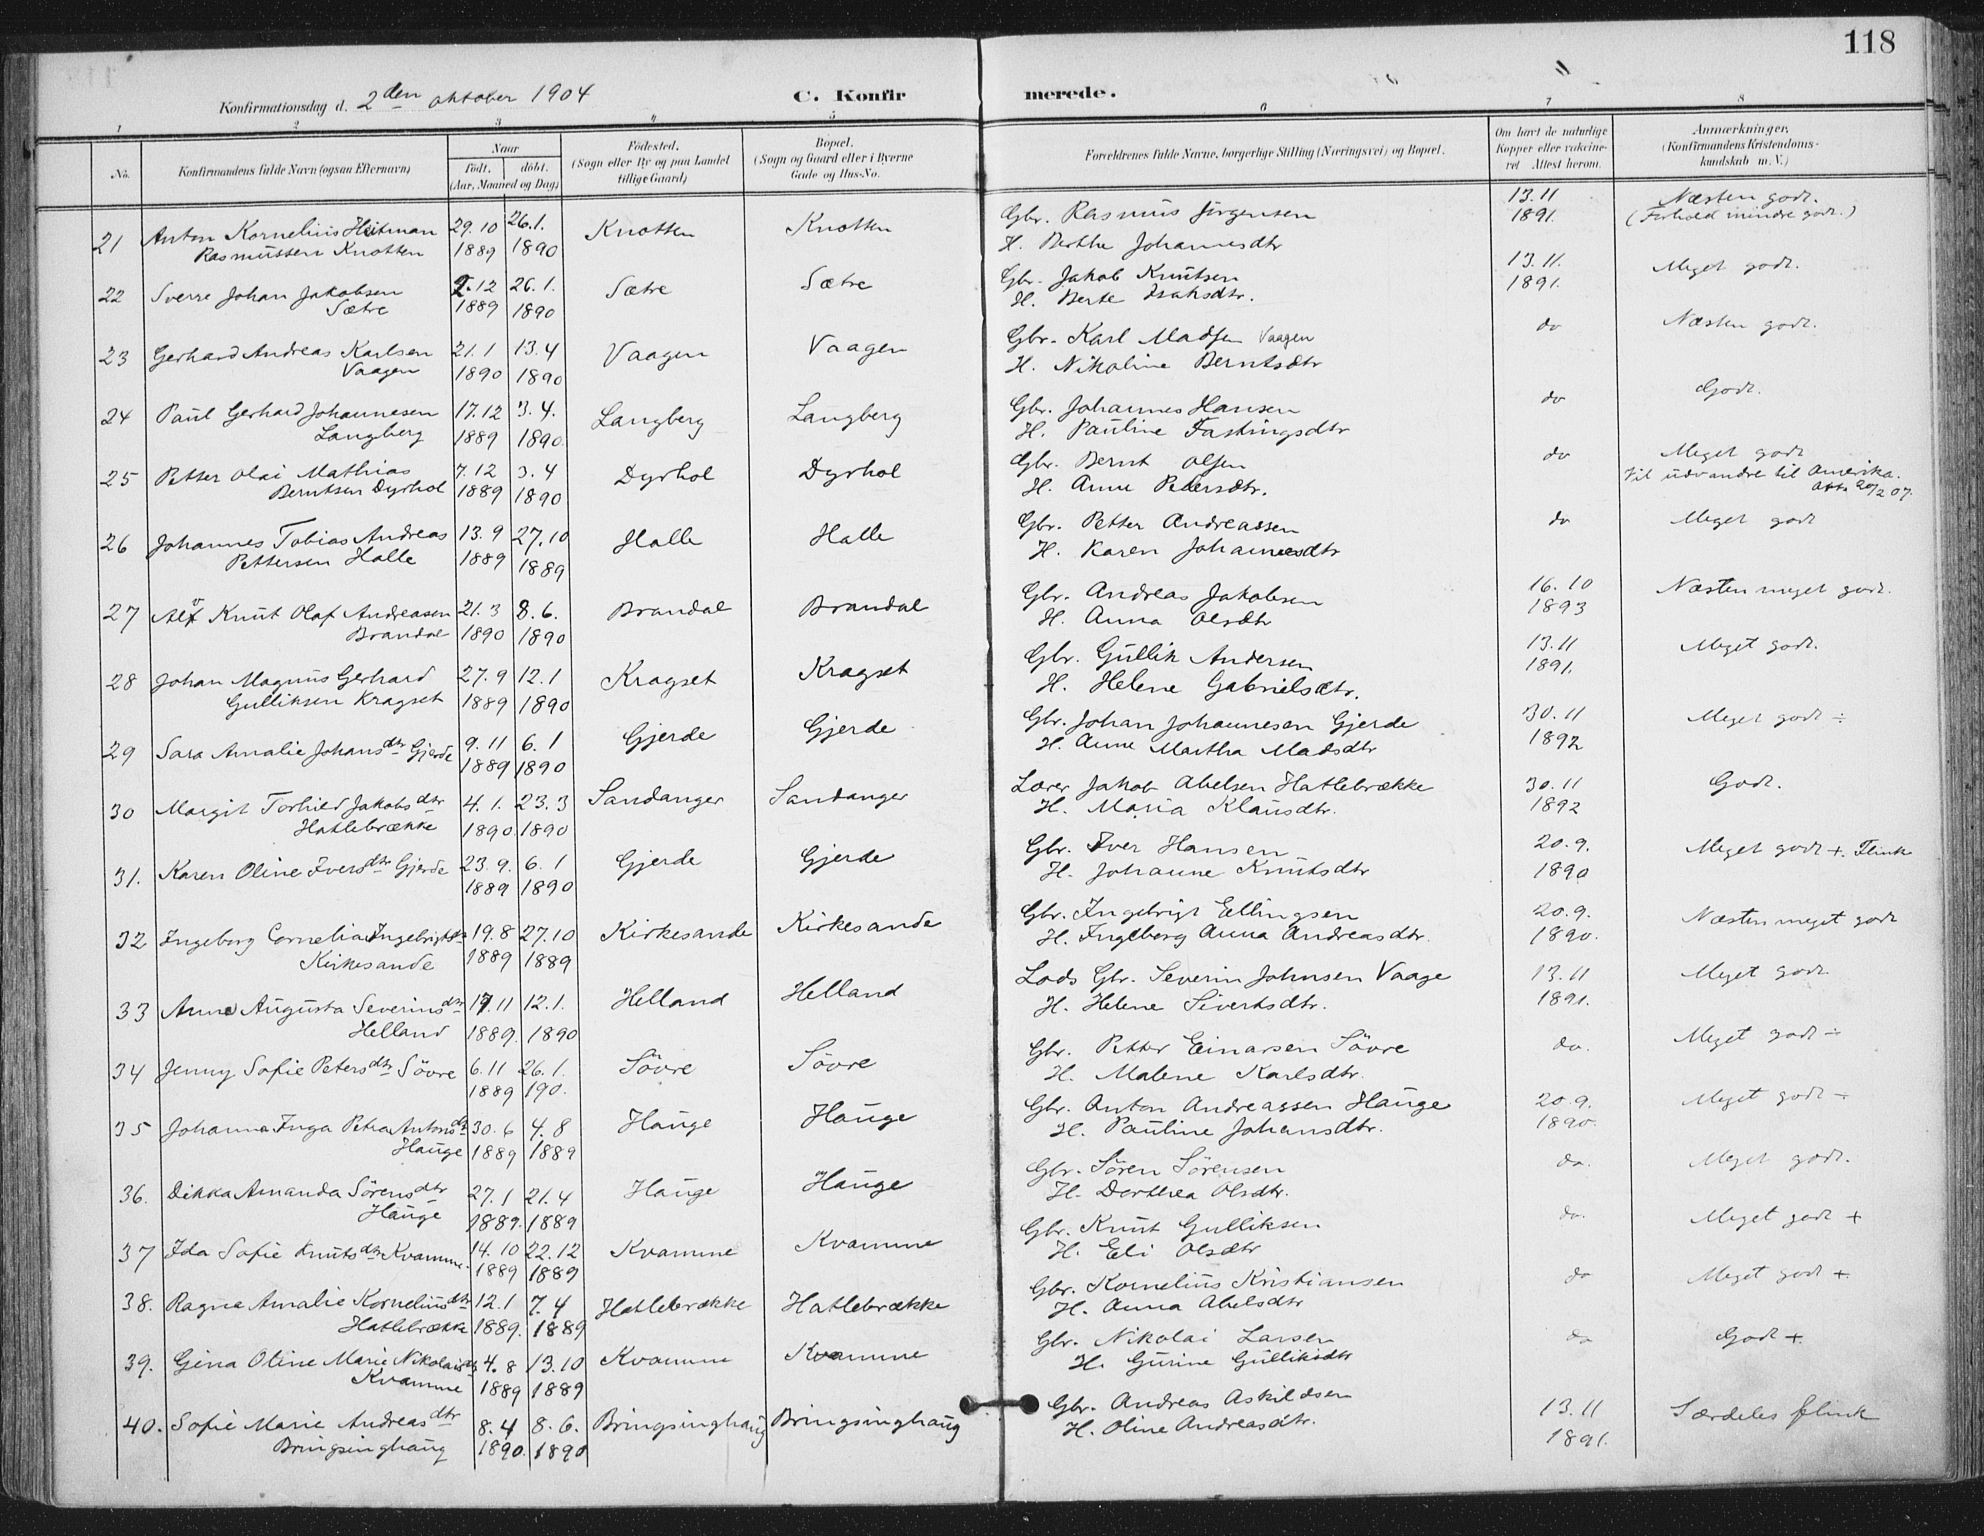 118
Konfirmationsdag d. 2den oktober 1904
C. Konfirmerede.
1 2 3 4 5 6 7 8
No. Konfirmandens fulde Navn (ogsaa Efternavn) Naar født. døbt. (Aar, Maaned og Dag) Födested. (Sogn eller By og paa Landet tillige Gaard) Bopæl. (Sogn og Gaard eller i Byerne Gade og Hus-No. Forældrenes fulde Navne, borgerlige Stilling (Næringsvei) og Bopæl. Om havt de naturlige Kopper eller vakcineret. Attest herom. Anmærkninger. (Konfirmandens Kristendomskundskab m. V.)
21 Anton Kornelius Hitman 29.10 26.1. Knotten Knotten Gbr. Rasmus Jörgensen 13.11 Næsten godt.
Rasmussen Knotten 1889 1890 H. Berthe Johannesdtr 1891. (Forhold mindre godt.)
22 Sverre Johan Jakobsen 2.12 26.1. Sætre Sætre Gbr. Jakob Knutsen 13.11. Meget godt.
Sætre 1889 1890 H. Berte Isaksdtr. 1891.
23 Gerhard Andreas Karlsen 21.1 13.4 Vaagen Vaagen Gbr. Karl Madsen Vaagen do Næsten godt.
Vaagen 1890 1890 H. Nikoline Berntsdtr
24 Paul Gerhard Johannesen 17.12 3.4. Langberg Langberg Gbr. Johannes Hansen do Godt.
Langberg 1889 1890. H. Pauline Fastingsdtr
25 Petter Olai Mathias 7.12 3.4 Dyrhol Dyrhol Gbr. Bernt Olsen do Meget godt
Berntsen Dyrhol 1889 1890 H. Anne Petersdtr. Vil udvandre til Amerika.
Att. 20/2 07.
26 Johannes Tobias Andreas 13.9 27.10 Halle Halle Gbr. Petter Andreassen do Meget godt
Pettersen Halle 1889 1889 H. Karen Johannesdtr
27 Alf Knut Olaf Andreasen 21.3 8.6. Brandal Brandal Gbr. Andreas Jakobsen 16.10 Næsten meget godt.
Brandal 1890 1890 H. Anna Olsdtr 1893
28 Johan Magnus Gerhard 27.9 12.1 Kragset Kragset Gbr. Gullik Andersen 13.11 Meget godt.
Gulliksen Kragset 1889 1890 H. Helene Gabrielsdtr. 1891.
29 Sara Amalie Johansdtr Gjerde 9.11 6.1 Gjerde Gjerde Gbr. Johan Johannesen Gjerde 30.11 Meget godt ÷
1889 1890 H. Anne Martha Madsdtr 1892
30 Margit Torhild Jakobsdtr 4.1. 23.3 Sandanger Sandanger Lærer Jakob Abelsen Hatlebrække 30.11 Godt.
Hatlebrække 1890 1890 H. Maria Klausdtr. 1892
31. Karen Oline Iversdtr Gjerde 23.9. 6.1 Gjerde Gjerde Gbr. Iver Hansen 20.9. Meget godt +. Flink
1889 1890 H. Johanne Knutsdtr 1890
32 Ingeborg Cornelia Ingebrigtsdtr 19.8 27.10 Kirkesande Kirkesande Gbr. Ingebrigt Ellingsen 20.9. Næsten meget godt
Kirkesande 1889 1889 H. Ingeborg Anna Andreasdtr. 1890.
33 Anna Augusta Severinsdtr 17.11 12.1. Helland Helland Lods Gbr. Severin Johnsen Vaage 13.11 Meget godt.
Helland 1889. 1890 H. Helene Sivertsdtr. 1891.
34 Jenny Sofie Petersdtr Sövre 6.11 26.1. Sövre Sövre Gbr. Petter Einarsen Sövre do. Meget godt ÷
1889 190. H. Malene Karlsdtr.
35 Johanna Inga Petra Antonsdtr 30.6 4.8 Hauge Hauge Gbr. Anton Andreassen Hauge 20.9. Meget godt ÷
Hauge 1889 1889 H. Pauline Johansdtr. 1890.
36. Dikka Amanda Sörensdtr 27.1 21.4 Hauge Hauge Gbr. Sören Sörensen do. Meget godt.
Hauge 1889. 1889 H. Dorthea Olsdtr.
37 Ida Sofie Knutsdtr Kvamme. 14.10 22.12 Kvamme Kvamme Gbr. Knut Gulliksen do. Meget godt +
1889 1889 H. Eli Olsdtr
38. Ragna Amalie Korneliusdtr 12.1 7.4 Hatlebrække Hatlebrække Gbr. Kornelius Kristiansen do Meget godt +
Hatlebrække 1889. 1889 H. Anna Abelsdtr
39. Gina Oline Marie Nikolaisdtr 4.8 13.10 Kvamme Kvamme Gbr. Nikolai Larsen do Godt +
Kvamme 1889 1889 H. Gurine Gulliksdtr
40. Sofie Marie Andreasdtr 8.4 8.6. Bringsinghaug Bringsinghaug Gbr. Andreas Askildsen 13.11 Særdeles flink
Bringsinghaug 1890. 1890 H. Oline Andreasdtr. 1891.